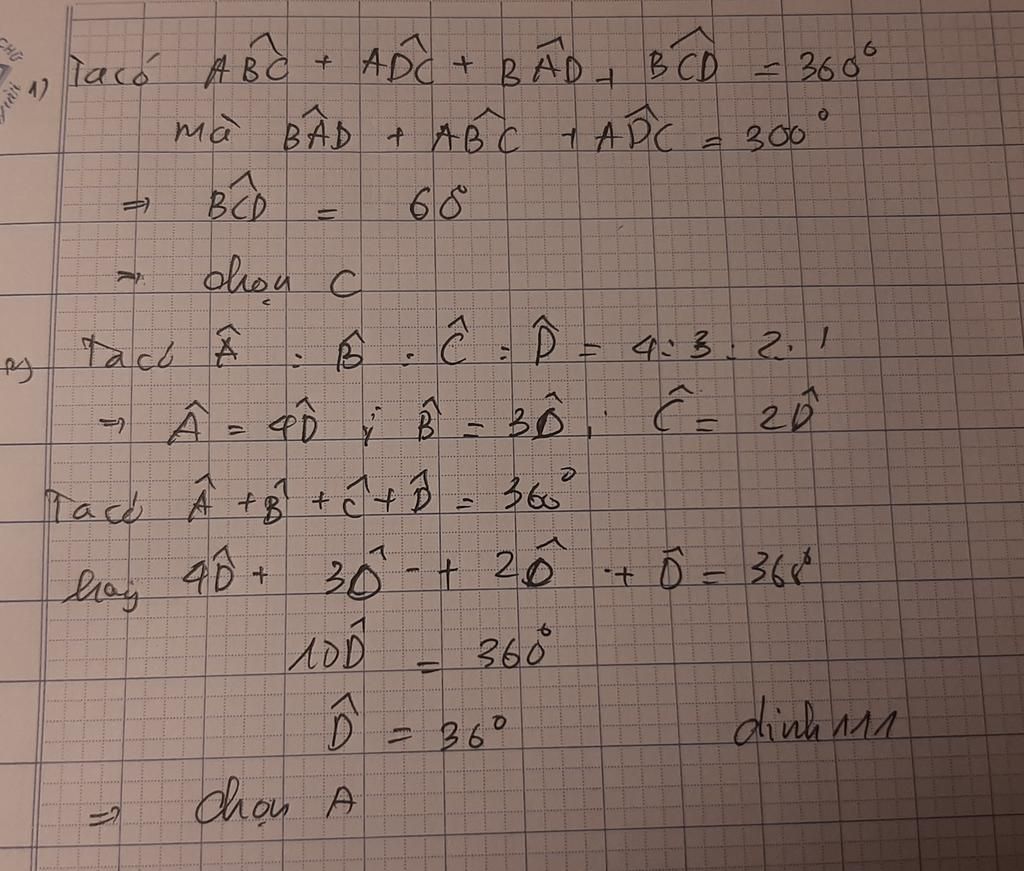 1) Ta có ABC^ + ADC^ + BAD^ + BCD^ = 360°
mà BAD^ + ABC^ + ADC^ = 300°
⇒ BCD^ = 60°
⇒ chọn C
2) Ta có Â : B̂ : Ĉ : D̂ = 4 : 3 : 2 : 1
⇒ Â = 4D̂ ; B̂ = 3D̂ ; Ĉ = 2D̂
Ta có Â + B̂ + Ĉ + D̂ = 360°
hay 4D̂ + 3D̂ + 2D̂ + D̂ = 360°
10D̂ = 360°
D̂ = 36° dinh111
⇒ chọn A